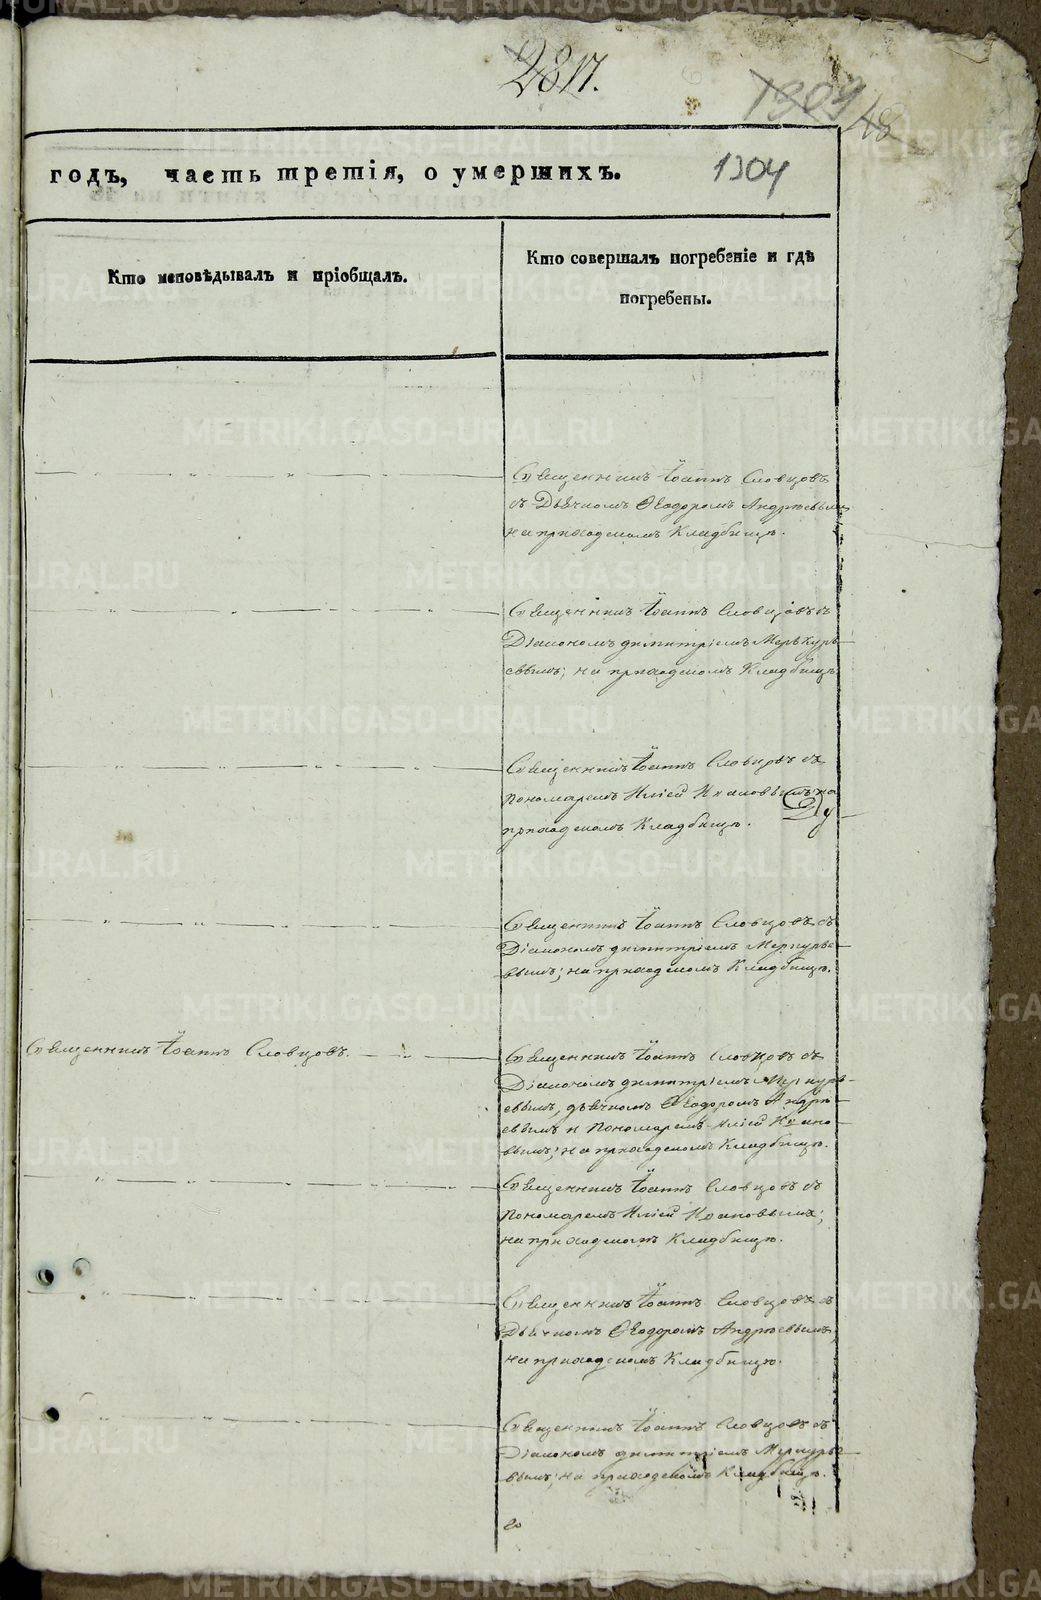 2817.
1309
48
годъ, часть третія, о умершихъ.
1304
Кто исповѣдывалъ и пріобщалъ.
Кто совершалъ погребеніе и гдѣ
погребены.
Священникъ Іоаннъ Словцовъ
съ Дьячкомъ Ѳеодоромъ Андреевымъ
на приходскомъ Кладбищѣ.
Священникъ Іоаннъ Словцовъ съ
Діакономъ Димитріемъ Меркурь-
евымъ; на приходскомъ Кладбищѣ
Священникъ Іоаннъ Словцовъ съ
пономаремъ Иліей Ивановымъ на
приходскомъ Кладбищѣ.
Священникъ Іоаннъ Словцовъ съ
Діакономъ Димитріемъ Меркурье-
вымъ; на приходскомъ Кладбищѣ.
Священникъ Іоаннъ Словцовъ.
Священникъ Іоаннъ Словцовъ съ
Діакономъ Димитріемъ Меркурь-
евымъ, дьячкомъ Ѳеодоромъ Андре-
евымъ и Пономаремъ Иліей Ивано-
вымъ; на приходскомъ Кладбищѣ.
Священникъ Іоаннъ Словцовъ съ
Пономаремъ Иліей Ивановымъ;
на приходскомъ Кладбищѣ.
Священникъ Іоаннъ Словцовъ съ
Дьячкомъ Ѳеодоромъ Андреевымъ,
на приходскомъ Кладбищѣ.
Священникъ Іоаннъ Словцовъ съ
Діакономъ Димитріемъ Меркурье-
вымъ; на приходскомъ Кладбищѣ.
METRIKI.GASO-URAL.RU